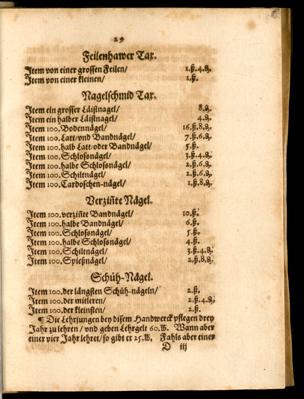 29
Feilenhawer Tax.
Item von einer grossen Feilen/ 1.ß.4.₰.
Item von einer kleinen/ 1.ß.
Nagelschmid Tax.
Item ein grosser Läißnagel/ 8.₰.
Item ein halber Läißnagel/ 4.₰.
Item 100. Bodennägel/ 16.ß.8.₰.
Item 100. Latt vnd Bandnägel/ 7.ß.6.₰.
Item 100. halb Latt oder Bandnägel/ 5.ß.
Item 100. Schlosnägel/ 3.ß.4.₰.
Item 100. halbe Schlosnägel/ 2.ß.6.₰.
Item 100. Schiltnägel/ 2.ß.6.₰.
Item 100. Cardoschen-nägel/ 1.ß.8.₰.
Verziñte Nägel.
Item 100. verziñte Bandnägel/ 10.ß.
Item 100. halbe Bandnägel/ 6.ß.
Item 100. Schlosnägel/ 5.ß.
Item 100. halbe Schlosnägel/ 4.ß.
Item 100. Schiltnägel/ 3.ß.4.₰.
Item 100. Spießnägel/ 2.ß.8.₰.
Schüh-Nägel.
Item 100. der längsten Schüh-nägeln/ 2.ß.
Item 100. der mitleren/ 2.ß.4.₰.
Item 100. der kleinsten/ 2.ß.
¶ Die Lehrjungen bey disem Handwerck pflegen drey
Jahr zu lehren/ vnd geben Lehrgelt 60. Wann aber
einer vier Jahr lehret/ so gibt er 25. Fahls aber einer
D iij